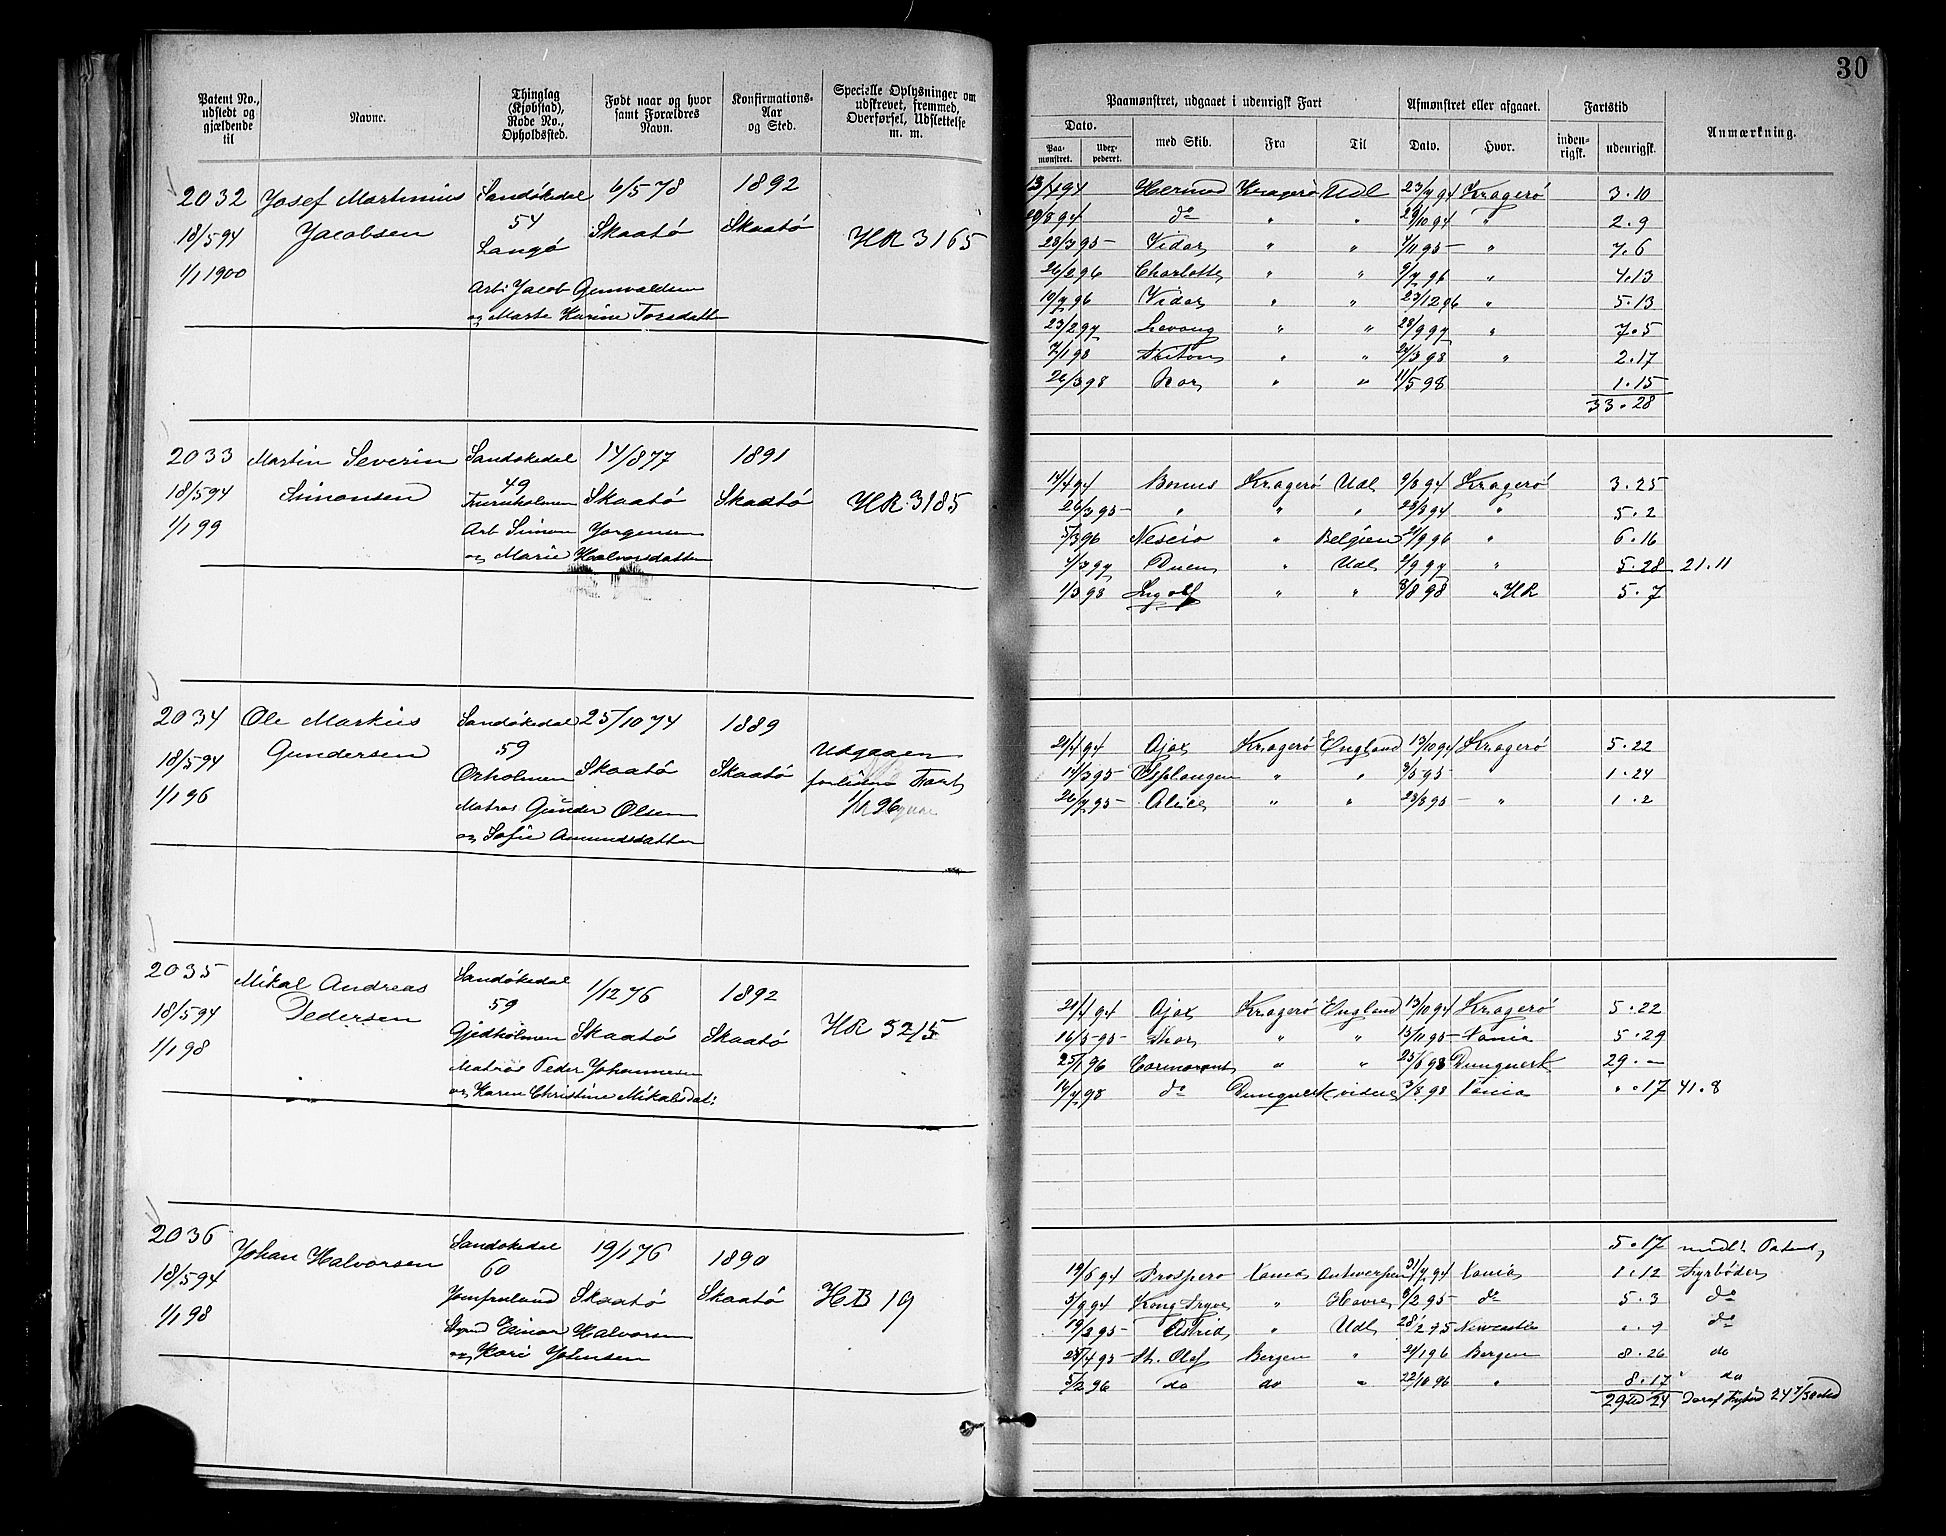 30
Patent No., udstedt og gjældende til
Navne.
Thinglag (Kjøbstad), Rode No., Opholdssted.
Født naar og hvor samt Forældres Navn.
Konfirmations-Aar og Sted.
Specielle Oplysninger om udskrevet, fremmed, Overførsel, Udslettelse m. m.
Paamønstret, udgaaet i udenrigsk Fart
Afmønstret eller afgaaet.
Fartstid
Anmærkning.
Dato.
Paamønstret. Udexpederet. med Skib. Fra Til Dato. Hvor. indenrigsk. udenrigsk.
2032 Josef Martinius Sandøkedal 6/5 78 1892
18/5 94 Jacobsen 54 Skaatø Skaatø HR 3165
Langø
1/1 1900
Arb: Jacob Gunvaldsen
og Marte Karine Torsdatt
13/4 94 Hermod Kragerø Udl 23/7 94 Kragerø 3.10
20/8 94 do " " 29/10 94 " 2.9
28/3 95 Vidar " " 4/11 95 " 7.6
26/2 96 Charlotte " " 9/7 96 " 4.13
10/7 96 Vidar " " 23/12 96 " 5.13
23/2 97 Levang " " 28/9 97 " 7.5
7/1 98 Triton " " 24/3 98 " 2.17
26/3 98 Nor " " 11/5 98 1.15
33.28
2033 Martin Severin Sandøkedal 14/8 77 1891
18/5 94 Simonsen 49 Skaatø Skaatø HR 3185
Furuholmen
1/1 99
Arb Simon Jørgensen
og Marie Halvorsdatter
14/4 94 Bonus Kragerø Udl 9/8 94 Kragerø 3.25
26/3 95 " " " 28/8 94 " 5.2
5/3 96 Neseio " Belgien 21/9 96 " 6.16
4/3 97 Duen " Udl 2/9 97 " 5.28 21.11
1/3 98 Ingolf " " 8/8 98 " HR 5.7
2034 Ole Markus Sandøkedal 25/10 74 1889
18/5 94 Gundersen 59 Skaatø Skaatø
Ørholmen
1/1 96
Udgaaen
forliden Fart
1/1 96
Matros Gunder Olsen
og Sofie Amundsdatter
21/4 94 Ajax Kragerø England 13/10 94 Kragerø 5.22
14/3 95 Esplangen " " 3/5 95 1.24
26/7 95 Alice " " 23/8 95 " 1.2
2035 Mikal Andreas Sandøkedal 1/12 76 1892
18/5 94 Pedersen 59 Skaatø Skaatø HR 3215
Gjedholmen
1/1 98
Matros Peder Johannesen
og Karen Christine Mikalsdat:
21/4 94 Ajax Kragerø England 13/10 94 Kragerø 5.22
16/5 95 Thor " " 15/11 95 Xania 5.29
25/1 96 Cormorant " " 25/6 98 Dunquerk 29.–
14/7 98 do Dunquerk videre 3/8 98 Xania ".17 41.8
2036 Johan Halvorsen Sandøkedal 19/1 76 1890
18/5 94 60 Skaatø Skaatø HB 19
Jomfruland
1/1 98
Einar Halvorsen
og Kari Johnsen
5.17 indl: Patent,
19/6 94 Prospero Xania Antwerpen 31/7 94 Xania 1.12 Fyrbøder
5/9 94 Kong Trygve " Havre 8/2 95 do 5.3 do
19/2 95 Astrid " Udl 28/2 95 Newcastle ".9 do
25/4 95 St. Olaf Bergen " 21/1 96 Bergen 8.26 do
5/2 96 do do " 22/10 96 " 8.17 do
24 7/30